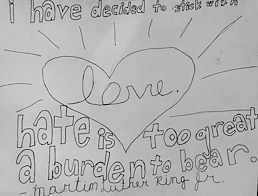 i have decided to stick with
love.
hate is too great
a burden to bear.
- Martin Luther King Jr.